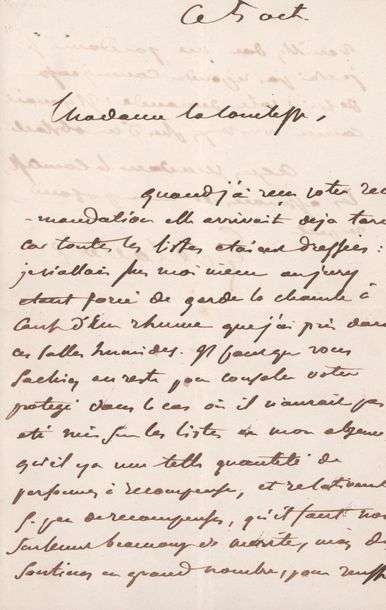 Ce 5 oct.
Madame la comtesse,
Quand j'ai reçu votre rec
-mandation elle arrivait deja tard
car toutes les listes etaient dressées :
je n'allais pas moi meme au jury
etant forcé de garder la chambre à
cause d'un rhume que j'ai pris dans
ces salles humides. Il faut que vous
sachiez au reste pour consoler votre
protégé dans le cas où il n'aurait pas
été mis sur les listes en mon absence
qu'il y a une telle quantité de
personnes à recompenser, et relativement
si peu de recompenses, qu'il faut non
seulement beaucoup de merite, mais des
soutiens en grand nombre, pour reussir